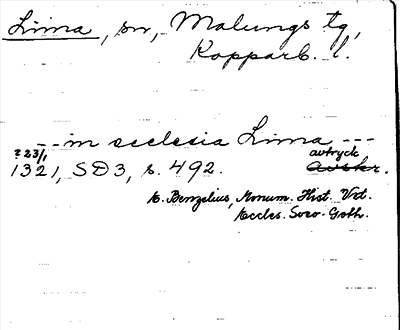 Lima, sn, Malungs tg,
Kopparb. l.
-- in ecclesia Lima ---
? 23/1 avtryck
1321, SD3, s. 492. Avskr.
E. Benzelius, Monum. Hist. Vet.
Eccles. Sveo-Goth.